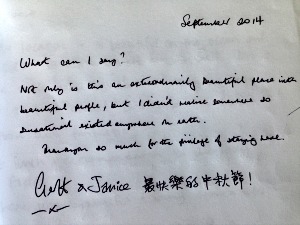 September 2014
What can I say?
Not only is this an extraordinarily beautiful place with
beautiful people, but I didn't realise somewhere so
sensational existed anywhere on earth.
Thankyou so much for the privilege of staying here.
& Janice 最快樂的中秋節!